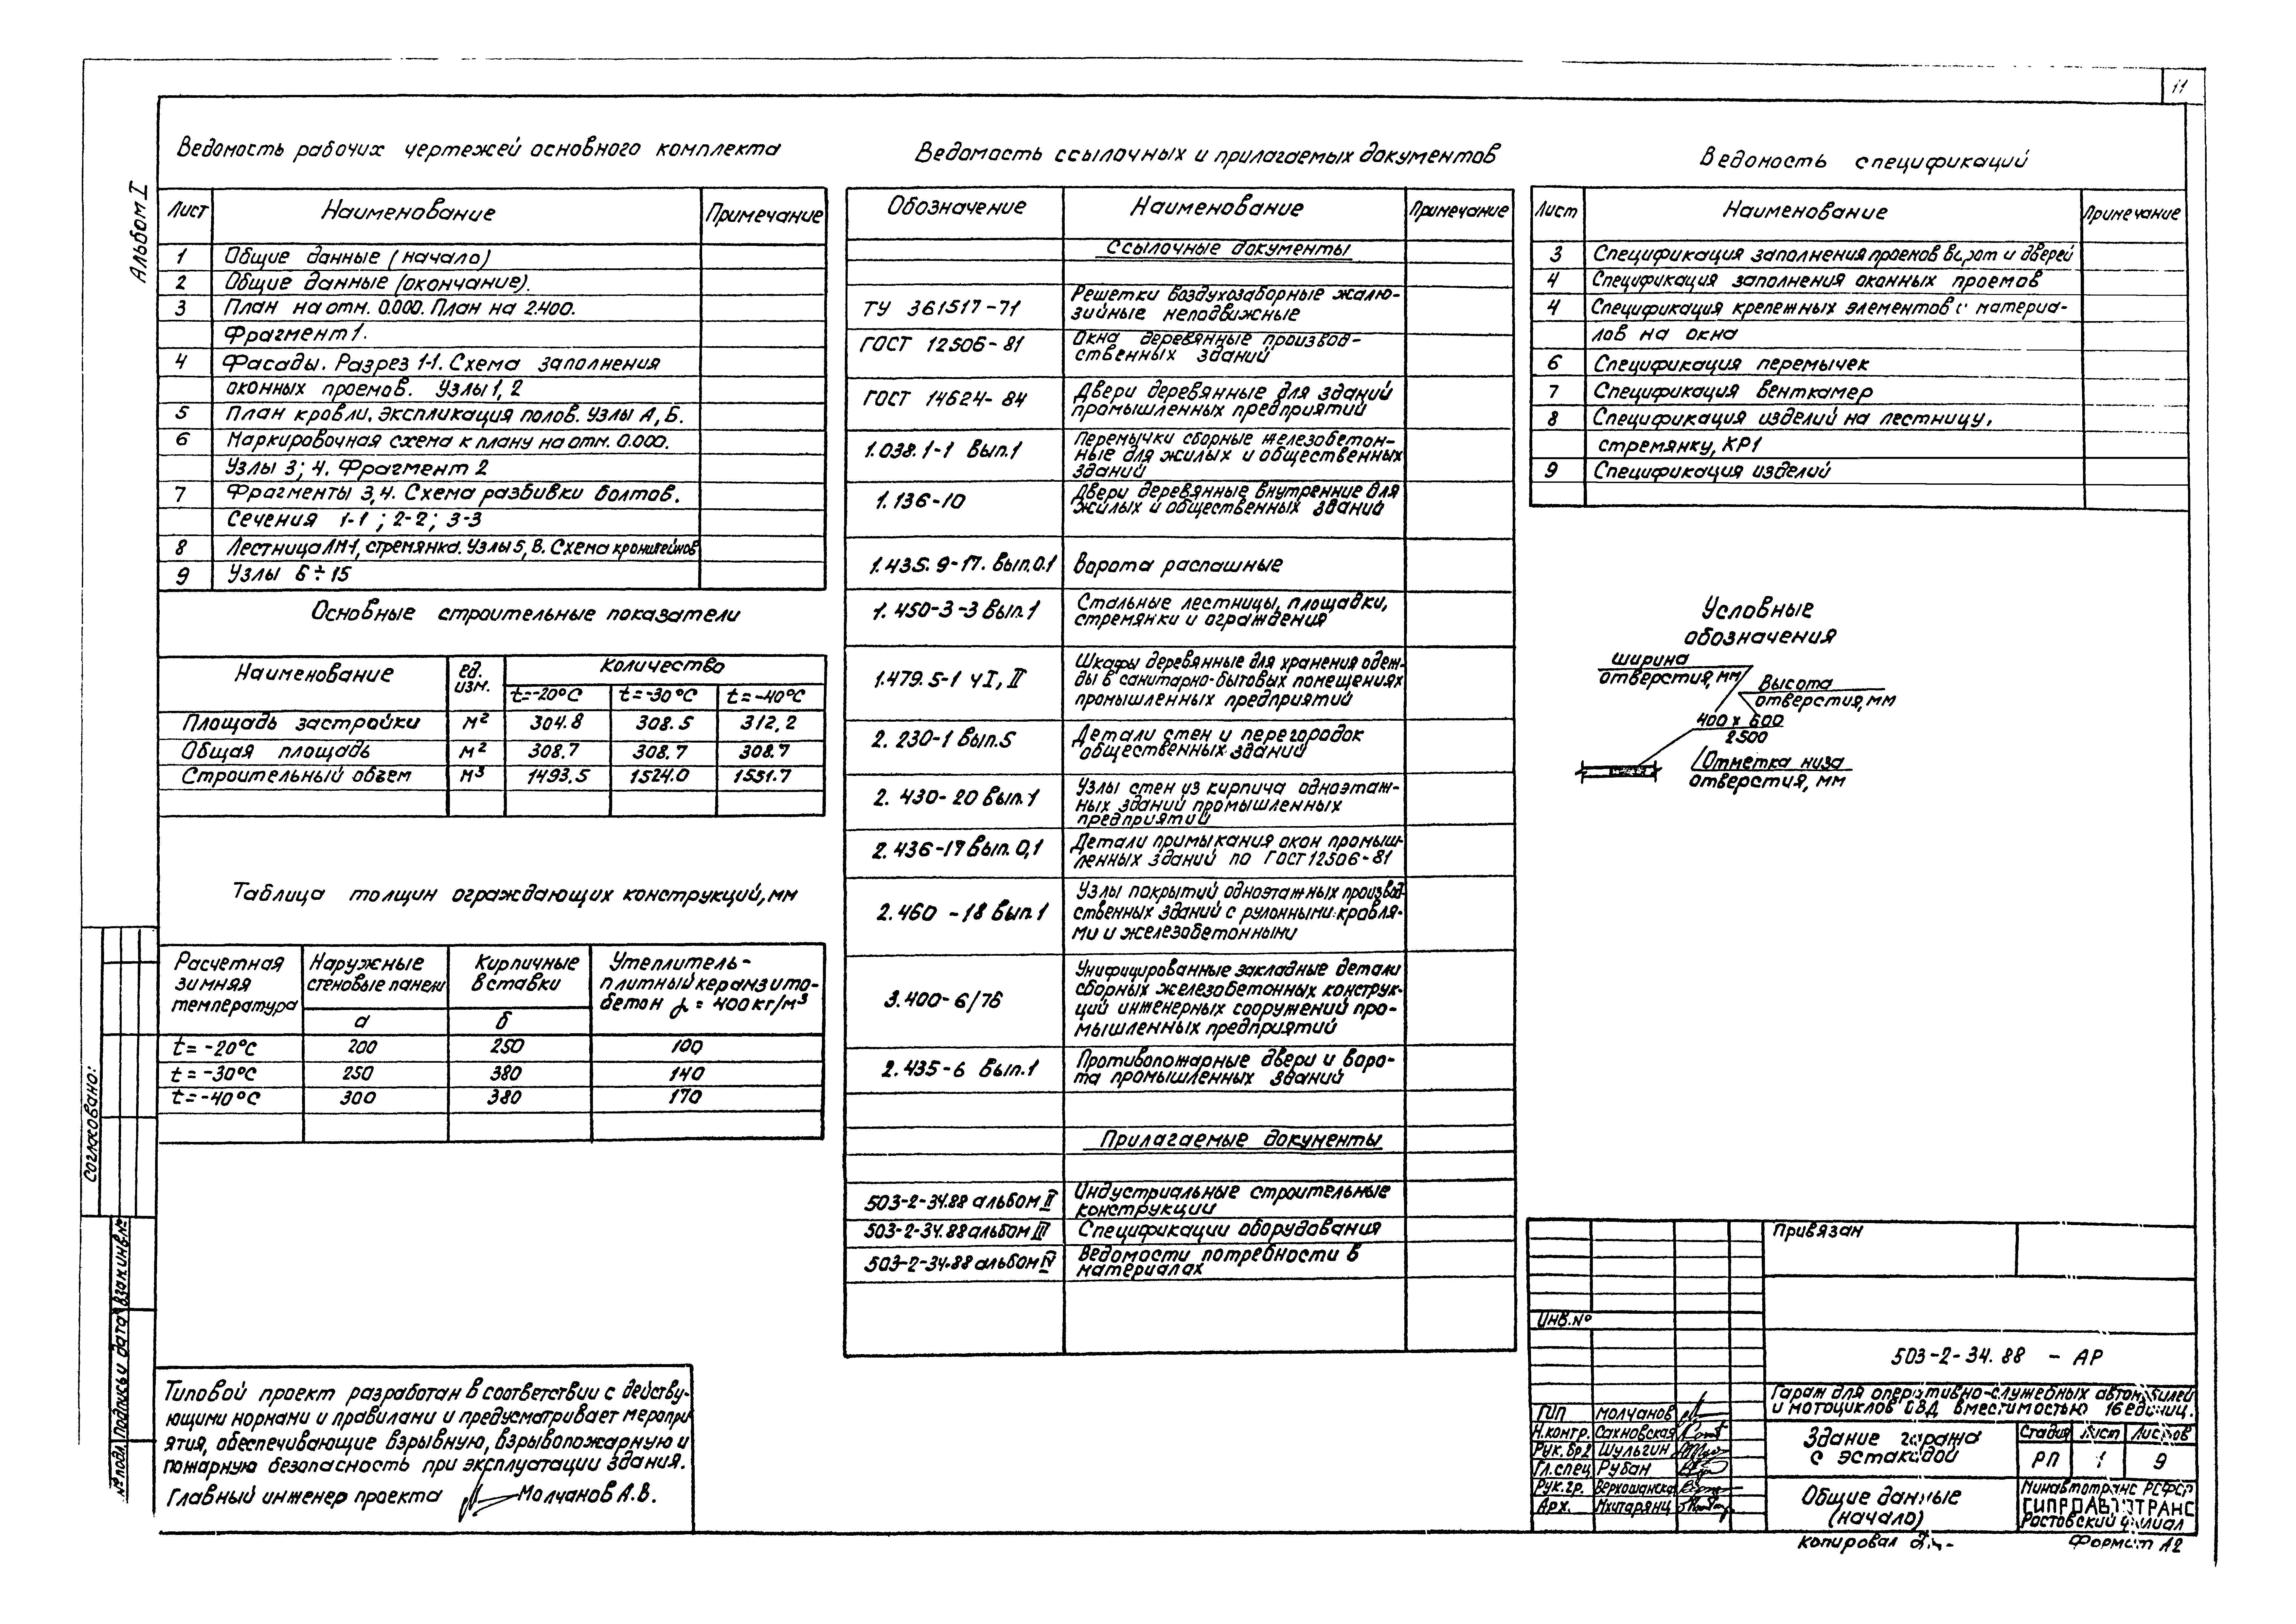 11
Альбом I
Ведомость рабочих чертежей основного комплекта
Лист Наименование Примечание
1 Общие данные (начало)
2 Общие данные (окончание).
3 План на отм. 0.000. План на 2.400.
Фрагмент 1.
4 Фасады. Разрез 1-1. Схема заполнения
оконных проемов. Узлы 1, 2
5 План кровли. Экспликация полов. Узлы А, Б.
6 Маркировочная схема к плану на отм. 0.000.
Узлы 3; 4. Фрагмент 2
7 Фрагменты 3,4. Схема разбивки болтов.
Сечения 1-1; 2-2; 3-3
8 Лестница ЛМ-1, стремянка. Узлы 5, В. Схема кронштейнов
9 Узлы 6÷15
Основные строительные показатели
Наименование ед. изм. Количество
t=-20°С t=-30°С t=-40°С
Площадь застройки м² 304.8 308.5 312,2
Общая площадь м² 308.7 308.7 308.7
Строительный объем м³ 1493.5 1524.0 1551.7
Таблица толщин ограждающих конструкций, мм
Расчетная Наружные Кирпичные Утеплитель-
зимняя стеновые панели вставки плитный керамзито-
температура бетон γ = 400 кг/м³
а б
t=-20°С 200 250 100
t=-30°С 250 380 140
t=-40°С 300 380 170
Типовой проект разработан в соответствии с действу-
ющими нормами и правилами и предусматривает меропри
ятия, обеспечивающие взрывную, взрывопожарную и
пожарную безопасность при эксплуатации здания.
Главный инженер проекта Молчанов А.В.
Ведомость ссылочных и прилагаемых документов
Обозначение Наименование Примечание
Ссылочные документы
ТУ 361517-71 Решетки воздухозаборные жалю-
зийные неподвижные
ГОСТ 12506-81 Окна деревянные производ-
ственных зданий
ГОСТ 14624-84 Двери деревянные для зданий
промышленных предприятий
1.038.1-1 Вып.1 Перемычки сборные железобетон-
ные для жилых и общественных
зданий
1.136-10 Двери деревянные внутренние для
жилых и общественных зданий
1.435.9-17. Вып.0.1 Ворота распашные
1.450-3-3 Вып.1 Стальные лестницы, площадки,
стремянки и ограждения
1.479.5-1 ч I, II Шкафы деревянные для хранения одеж-
ды в санитарно-бытовых помещениях
промышленных предприятий
2.230-1 Вып.5 Детали стен и перегородок
общественных зданий
2.430-20 Вып.1 Узлы стен из кирпича одноэтаж-
ных зданий промышленных
предприятий
2.436-17 Вып. 0,1 Детали примыкания окон промыш-
ленных зданий по ГОСТ 12506-81
2.460-18 Вып.1 Узлы покрытий одноэтажных производ-
ственных зданий с рулонными кровля-
ми и железобетонными
3.400-6/76 Унифицированные закладные детали
сборных железобетонных конструк-
ций инженерных сооружений про-
мышленных предприятий
2.435-6 Вып.1 Противопожарные двери и воро-
та промышленных зданий
Прилагаемые документы
503-2-34.88 альбом II Индустриальные строительные
конструкции
503-2-34.88 альбом III Спецификации оборудования
503-2-34.88 альбом IV Ведомости потребности в
материалах
Ведомость спецификаций
Лист Наименование Примечание
3 Спецификация заполнения проемов ворот и дверей
4 Спецификация заполнения оконных проемов
4 Спецификация крепежных элементов и материа-
лов на окна
6 Спецификация перемычек
7 Спецификация венткамер
8 Спецификация изделий на лестницу,
стремянку, КР1
9 Спецификация изделий
Условные
обозначения
ширина
отверстия, мм
Высота
отверстия, мм
400 х 600
2500
Отметка низа
отверстия, мм
Согласовано:
№ подл. Подпись и дата Взам инв.№
Привязан
Инв.№
503-2-34.88 - АР
Гараж для оперативно-служебных автомобилей
и мотоциклов ОВД вместимостью 16 единиц.
ГИП Молчанов
Н.контр. Сахновская
Рук.бр. Шульгин
Гл.спец Рубан
Рук.гр.
Арх. Мхитарянц
Здание гаража
с эстакадой
Стадия Лист Листов
РП 1 9
Общие данные
(начало)
Минавтотранс РСФСР
ГИПРОАВТОТРАНС
Ростовский филиал
Копировал
Формат А2